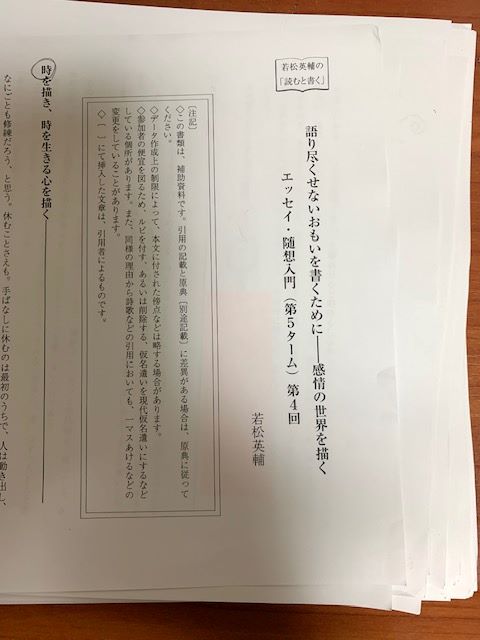 若松英輔の
「読むと書く」
語り尽くせないおもいを書くために――感情の世界を描く
エッセイ・随想入門（第5ターム）第4回
若松英輔
［注記］
◇この書類は、補助資料です。引用の記載と原典［別途記載］に差異がある場合は、原典に従って
ください。
◇データ作成上の制限によって、本文に付された傍点などは略する場合があります。
◇参加者の便宜を図るため、ルビを付す、あるいは削除する、仮名遣いを現代仮名遣いにするなど
している個所があります。また、同様の理由から詩歌などの引用においても、一マスあけるなどの
変更をしていることがあります。
◇［ ］にて挿入した文章は、引用者によるものです。
時を描き、時を生きる心を描く
なにごとも修練だろう、と思う。休むことさえも。手ばなしに休むのは最初のうちで、人は動き出し、